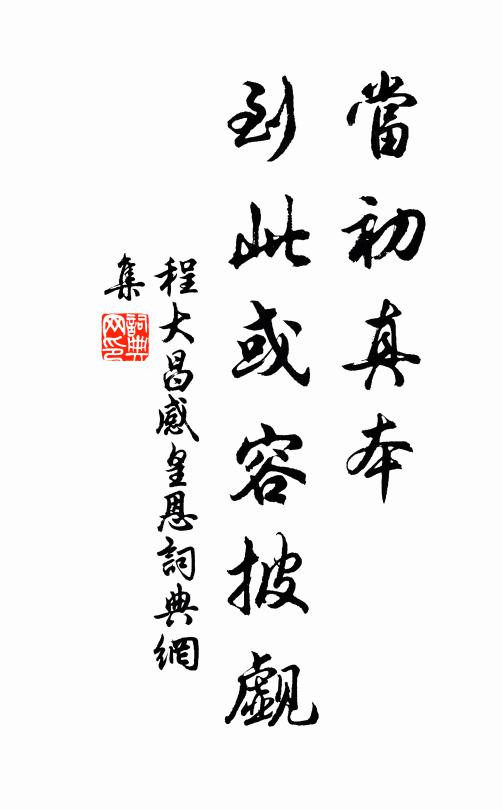 當初真本
到此或容披覷
程大昌感皇恩詞典網
集
詞典網印